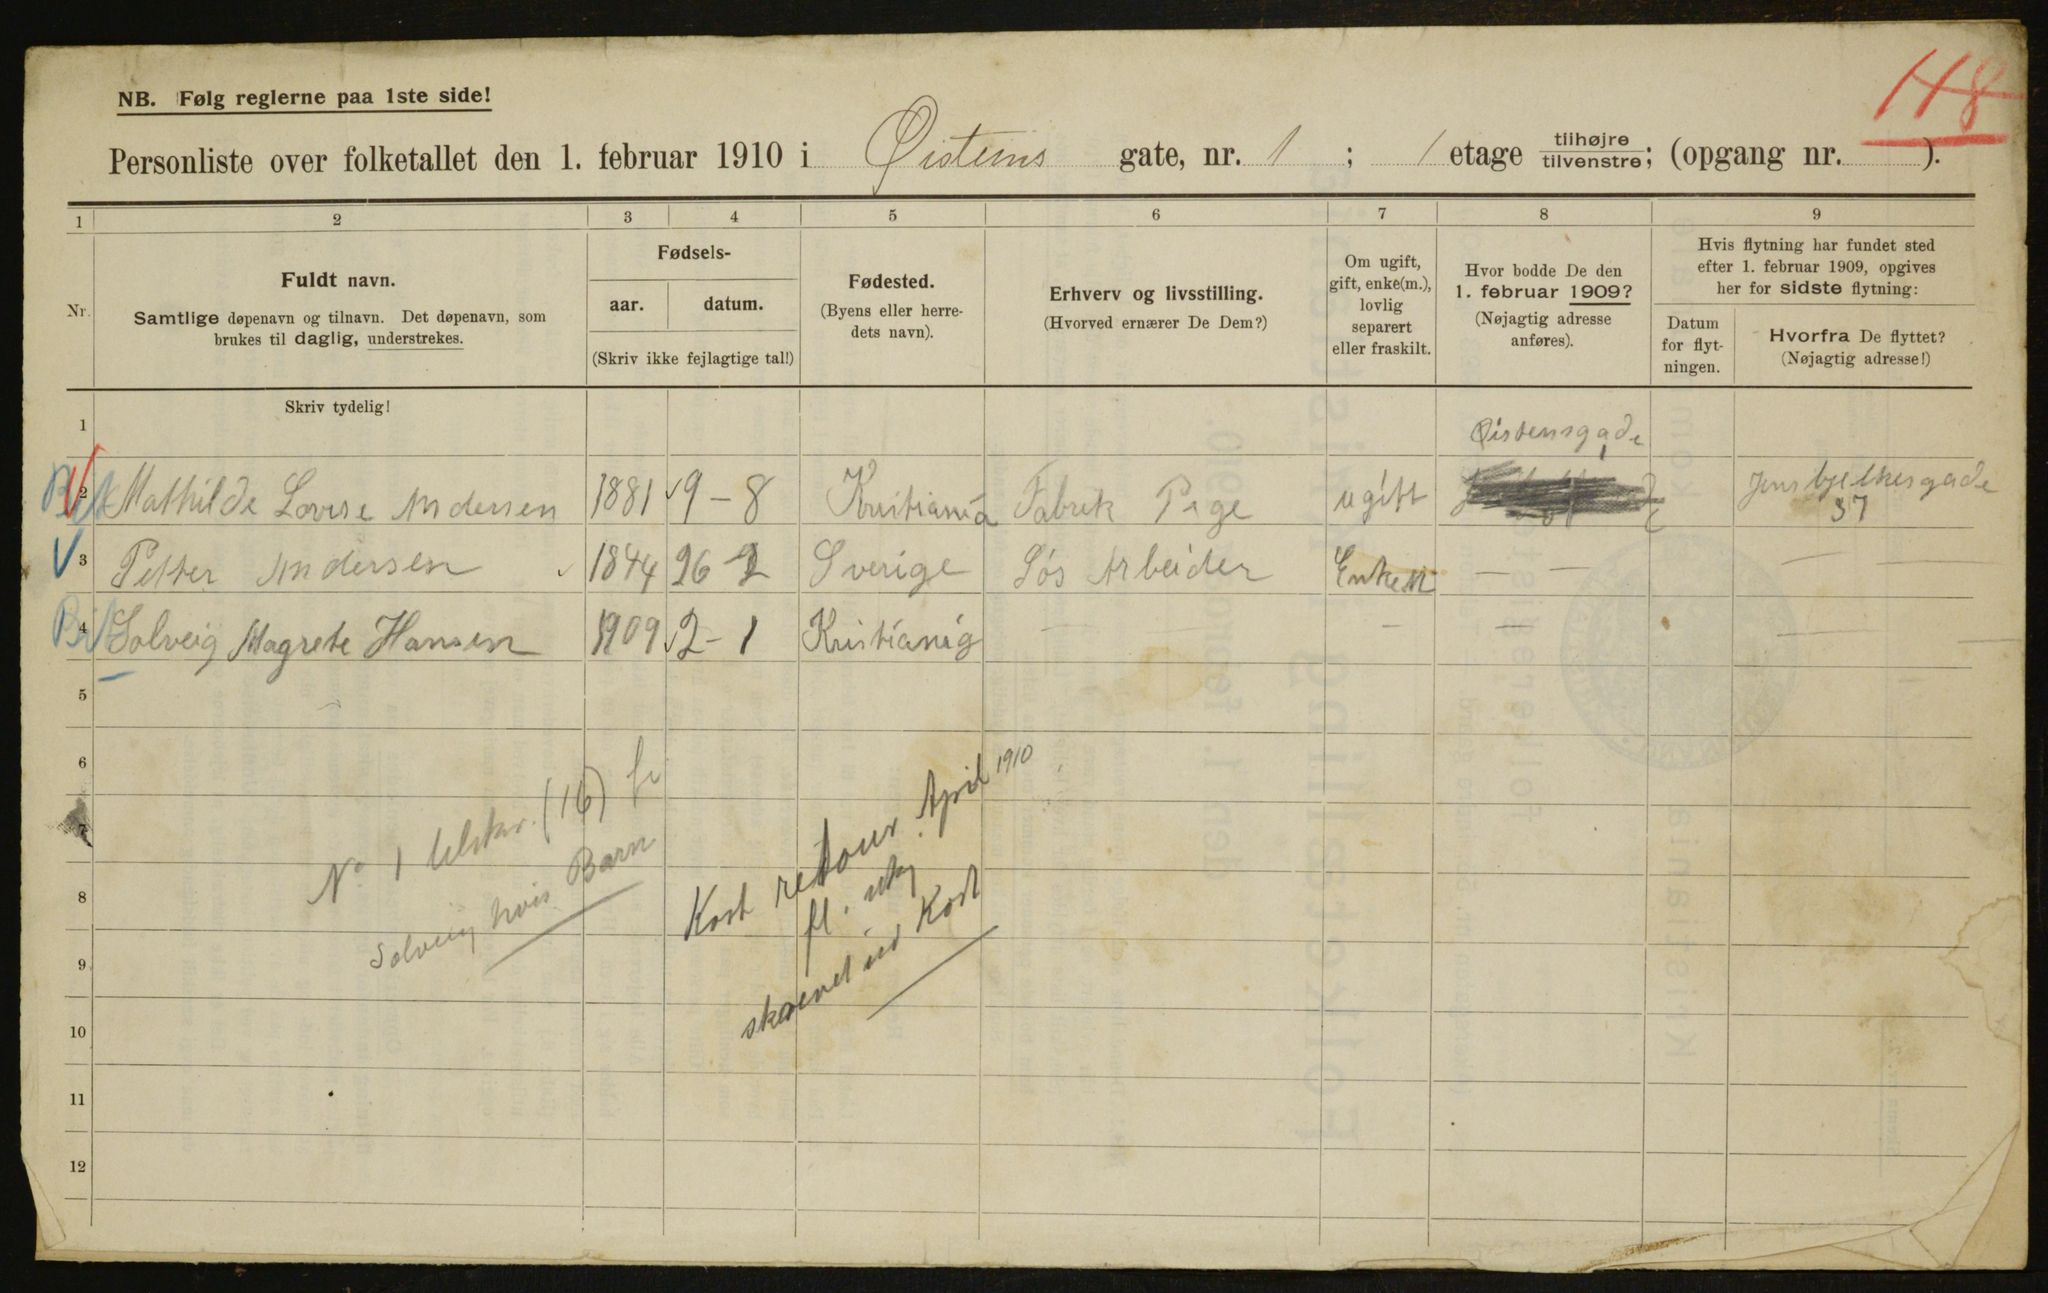 NB. Følg reglerne paa 1ste side!
148
Personliste over folketallet den 1. februar 1910 i Øisteins gate, nr. 1 ; 1 etage tilhøjre/tilvenstre; (opgang nr. ).
1 2 3 4 5 6 7 8 9
Nr.
Fuldt navn.
Samtlige døpenavn og tilnavn. Det døpenavn, som
brukes til daglig, understrekes.
Fødsels-
aar. datum.
(Skriv ikke fejlagtige tal!)
Fødested.
(Byens eller herre-
dets navn).
Erhverv og livsstilling.
(Hvorved ernærer De Dem?)
Om ugift,
gift, enke(m.),
lovlig
separert
eller fraskilt.
Hvor bodde De den
1. februar 1909?
(Nøjagtig adresse
anføres).
Hvis flytning har fundet sted
efter 1. februar 1909, opgives
her for sidste flytning:
Datum
for flyt-
ningen.
Hvorfra De flyttet?
(Nøjagtig adresse!)
Skriv tydelig!
1
Øistensgade 1
2 Mathilde Lovise Andersen 1881 9-8 Kristiania Fabrik Pige ugift Jensbjelkesgade
37
3 Petter Andersen 1844 26-2 Sverige Løs Arbeider Enkem — — — —
4 Solveig Magrete Hansen 1909 2-1 Kristiania — — — — — —
5
6
7
8
9
10
11
12
No 1 (16)
Solveig hvis Barn
Kort retour April 1910
fl.
skrevet ud Kort